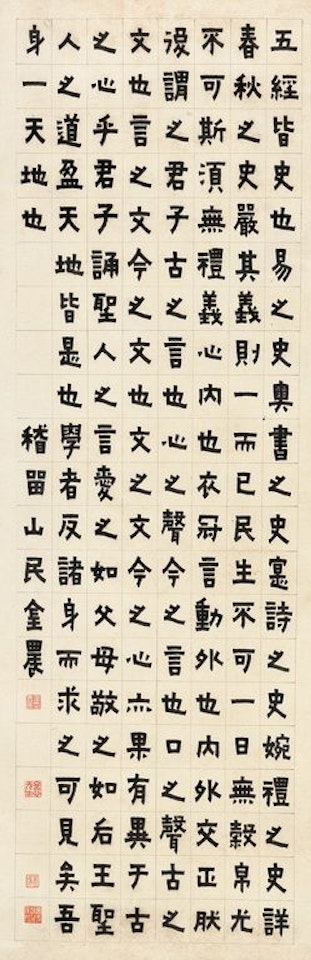 五經皆史也易之史奧書之史寔詩之史婉禮之史詳
春秋之史嚴其義則一而已民生不可一日無穀帛尤
不可斯須無禮義心內也衣冠言動外也內外交正肰
後謂之君子古之言也心之聲今之言也口之聲古之
文也言之文今之文也文之文今之心亦果有異于古
之心乎君子誦聖人之言愛之如父母敬之如后王聖
人之道盈天地皆是也學者反諸身而求之可見矣吾
身一天地也
稽留山民金農